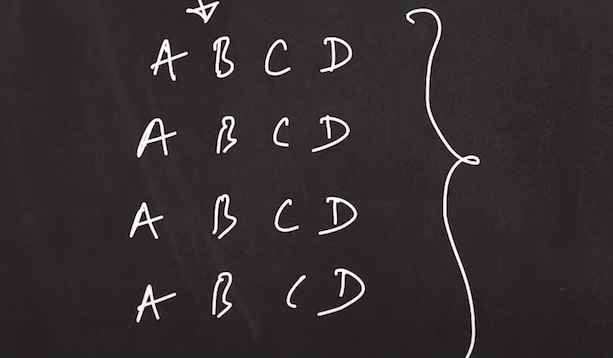 A B C D
A B C D
A B C D
A B C D